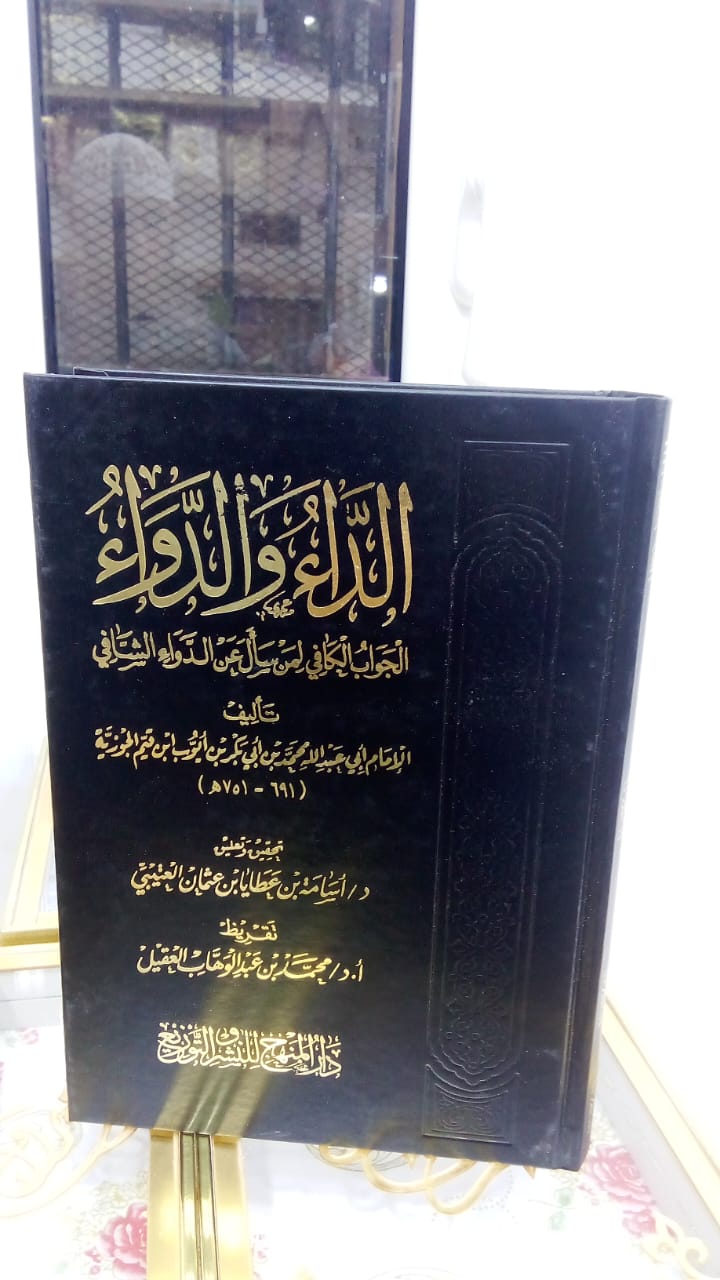 الدَّاءُ وَالدَّوَاءُ
الْجَوَابُ الْكَافِي لِمَنْ سَأَلَ عَنْ الدَّوَاءِ الشَّافِي
تَأليف
الإِمَام أَبِي عَبْدِ اللهِ مُحَمَّد بْن أَبِي بَكْر بْن أَيُّوب ابْن قَيِّم الجَوْزِيَّة
(٦٩١ - ٧٥١هـ)
تحقيق وتعليق
د/ أُسَامَة بْن عَطَايَا بْن عُثمان العُتَيْبِيّ
تَقْرِيظ
أ.د/ محمَّد بْن عَبْدِ الوَهَّاب العَقِيل
دَارُ المِنْهَاج لِلنَّشْرِ وَالتَّوْزِيعِ